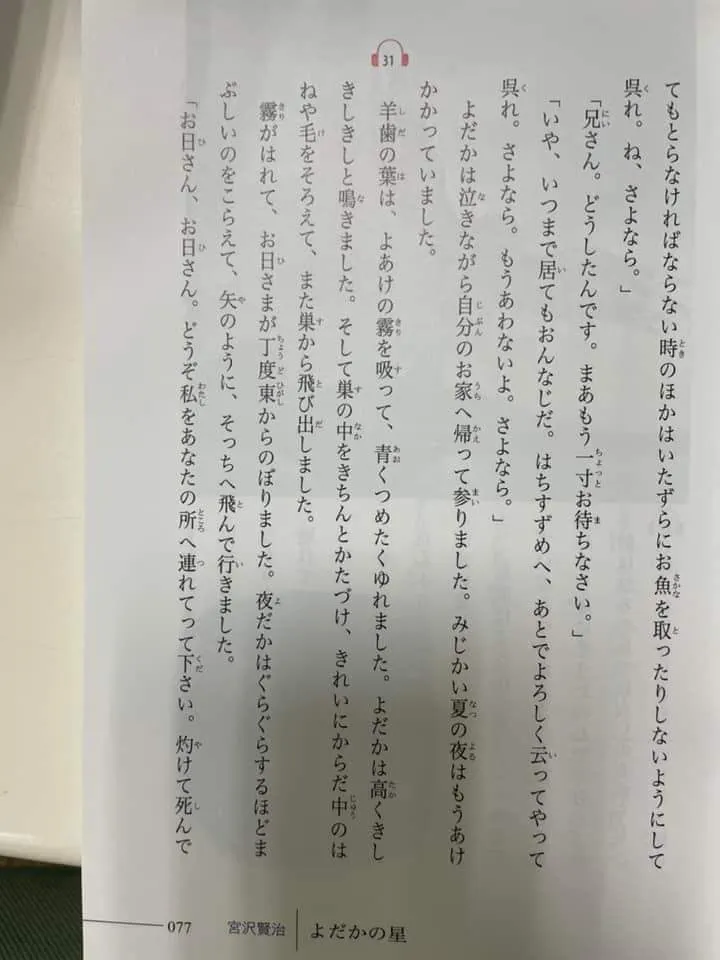 31
てもとらなければならない時のほかはいたずらにお魚を取ったりしないようにして
呉れ。ね、さよなら。」
「兄さん。どうしたんです。まあもう一寸お待ちなさい。」
「いや、いつまで居てもおんなじだ。はちすずめへ、あとでよろしく云ってやって
呉れ。さよなら。もうあわないよ。さよなら。」
よだかは泣きながら自分のお家へ帰って参りました。みじかい夏の夜はもうあけ
かかっていました。
羊歯の葉は、よあけの霧を吸って、青くつめたくゆれました。よだかは高くきし
きしきしと鳴きました。そして巣の中をきちんとかたづけ、きれいにからだ中のは
ねや毛をそろえて、また巣から飛び出しました。
霧がはれて、お日さまが丁度東からのぼりました。夜だかはぐらぐらするほどま
ぶしいのをこらえて、矢のように、そっちへ飛んで行きました。
「お日さん、お日さん。どうぞ私をあなたの所へ連れてって下さい。灼けて死んで
よだかの星
宮沢賢治
077